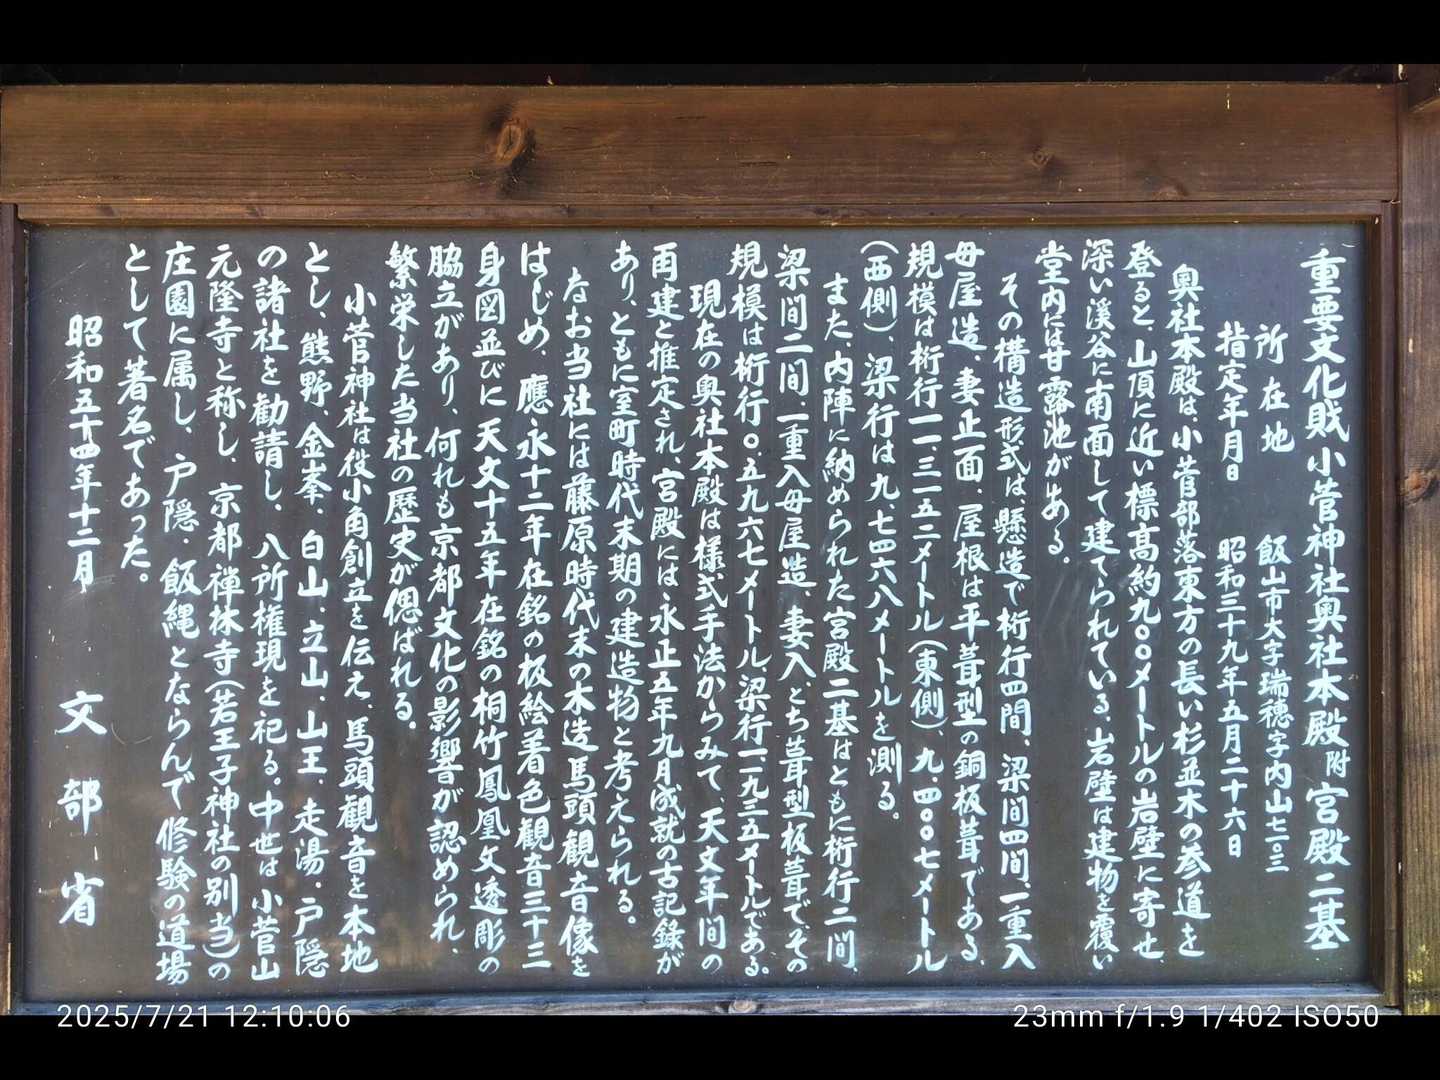 重要文化財小菅神社奥社本殿附宮殿二基
所在地　飯山市大字瑞穂字内山七〇三
指定年月日　昭和三十九年五月二十六日
奥社本殿は、小菅部落東方の長い杉並木の参道を
登ると、山頂に近い標高約九〇〇メートルの岩壁に寄せ、
深い溪谷に南面して建てられている。岩壁は建物を覆い
堂内には甘露池がある。
その構造形式は、懸造で桁行四間、梁間四間、一重入
母屋造、妻正面、屋根は平葺型の銅板葺である。
規模は桁行一一、三一五二メートル（東側）、九、四〇〇七メートル
（西側）、梁行は九、七四六八メートルを測る。
また、内陣に納められた宮殿二基はともに桁行二間、
梁間二間、一重入母屋造、妻入、とち葺型板葺で、その
規模は桁行〇、五九六七メートル、梁行一、九三五メートルである。
現在の奥社本殿は様式手法からみて、天文年間の
再建と推定され、宮殿には永正五年九月成就の古記錄が
あり、ともに室町時代末期の建造物と考えられる。
なお当社には藤原時代末の木造馬頭観音像を
はじめ、應永十二年在銘の板絵着色観音三十三
身図並びに天文十五年在銘の桐竹鳳凰文透彫の
脇立があり、何れも京都文化の影響が認められ、
繁栄した当社の歴史が偲ばれる。
小菅神社は役小角創立を伝え、馬頭観音を本地
とし、熊野、金峯、白山、立山、山王、走湯、戸隠
の諸社を勧請し、八所権現を祀る。中世は小菅山
元隆寺と称し、京都禅林寺（若王子神社の別当）の
庄園に属し、戸隠、飯縄とならんで修験の道場
として著名であった。
昭和五十四年十二月　文部省
2025/7/21 12:10:06
23mm f/1.9 1/402 ISO50